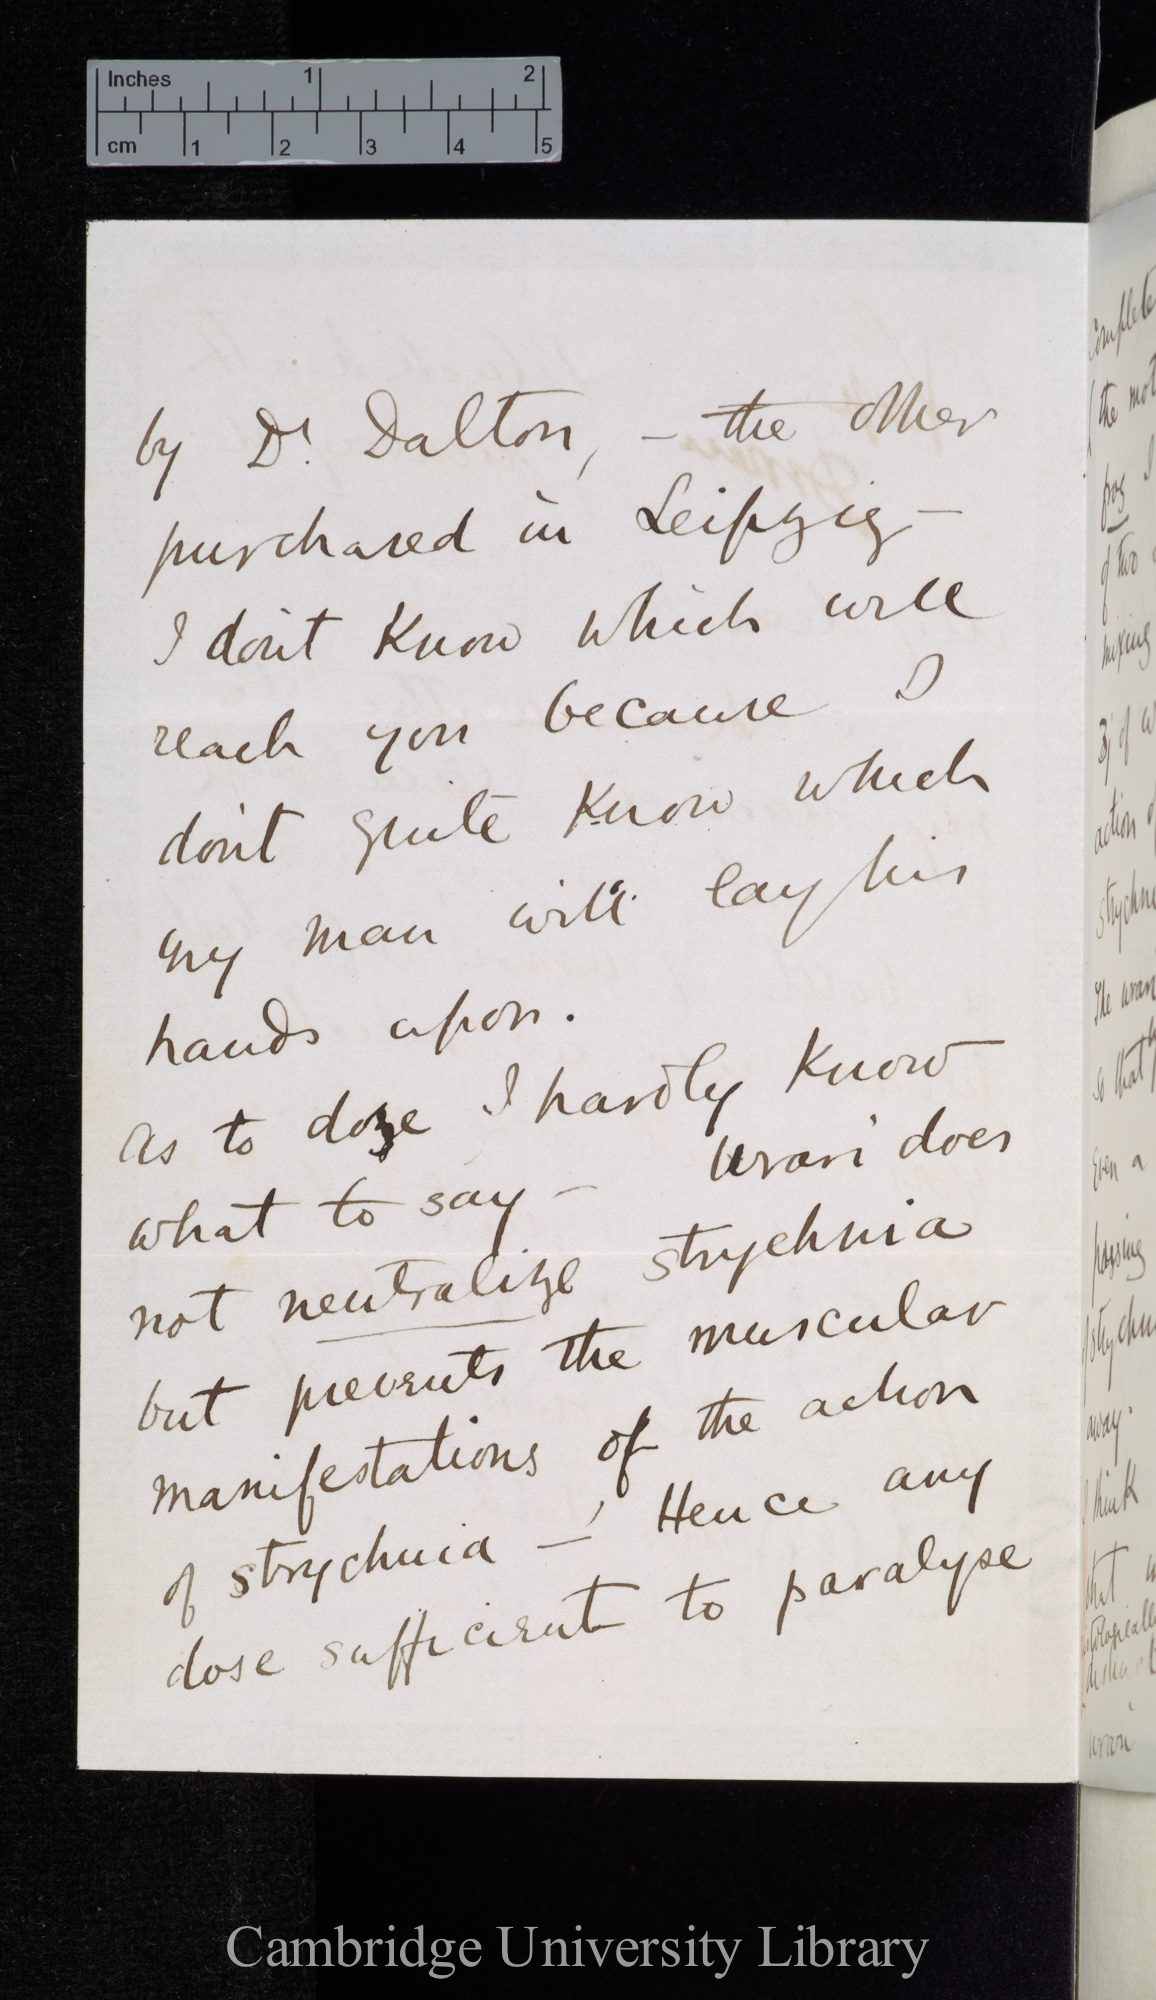 Inches 1 2
cm 1 2 3 4 5
by Dr. Dalton, – the other
purchased in Leipzig –
I don't know which will
reach you because I
don't quite know which
my man will lay his
hands upon.
As to dose I hardly know
what to say – Urari does
not neutralize strychnia
but prevents the muscular
manifestations of the action
of strychnia –! Hence any
dose sufficient to paralyse
complete
the mot
frog
of two
mixing
of
action
strychn
The urari
so that
Even a
passing
strychn
away.
I think
that
urari
Cambridge University Library